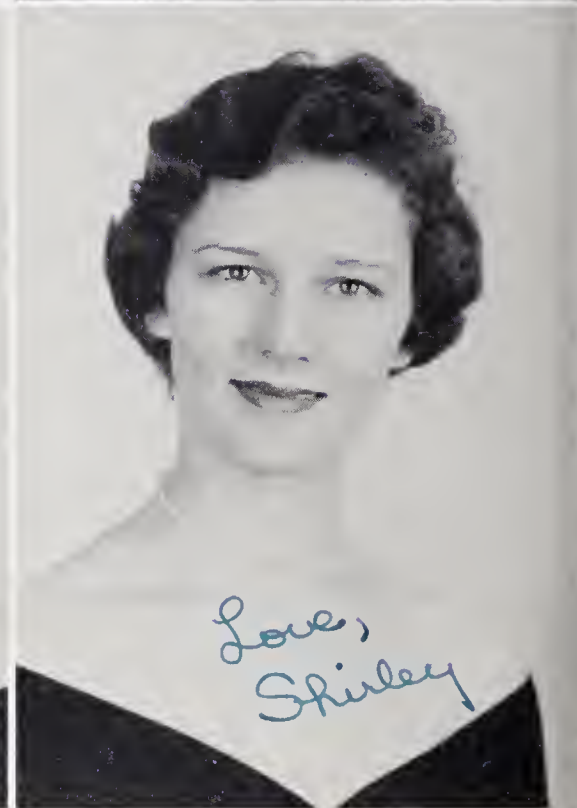 Love,
Shirley